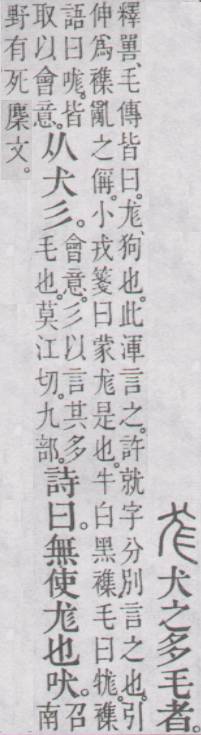 尨犬之多毛者。
釋嘼、毛傳皆曰。尨、狗也。此渾言之。許就字分別言之也。引
伸爲襍亂之偁。小戎箋曰蒙尨是也。牛白黑襍毛曰牻。襍
語曰哤。皆
取以會意。
从犬彡。
會意。彡以言其多
毛也。莫江切。九部。
詩曰。無使尨也吠。
召
南
野有死麇文。